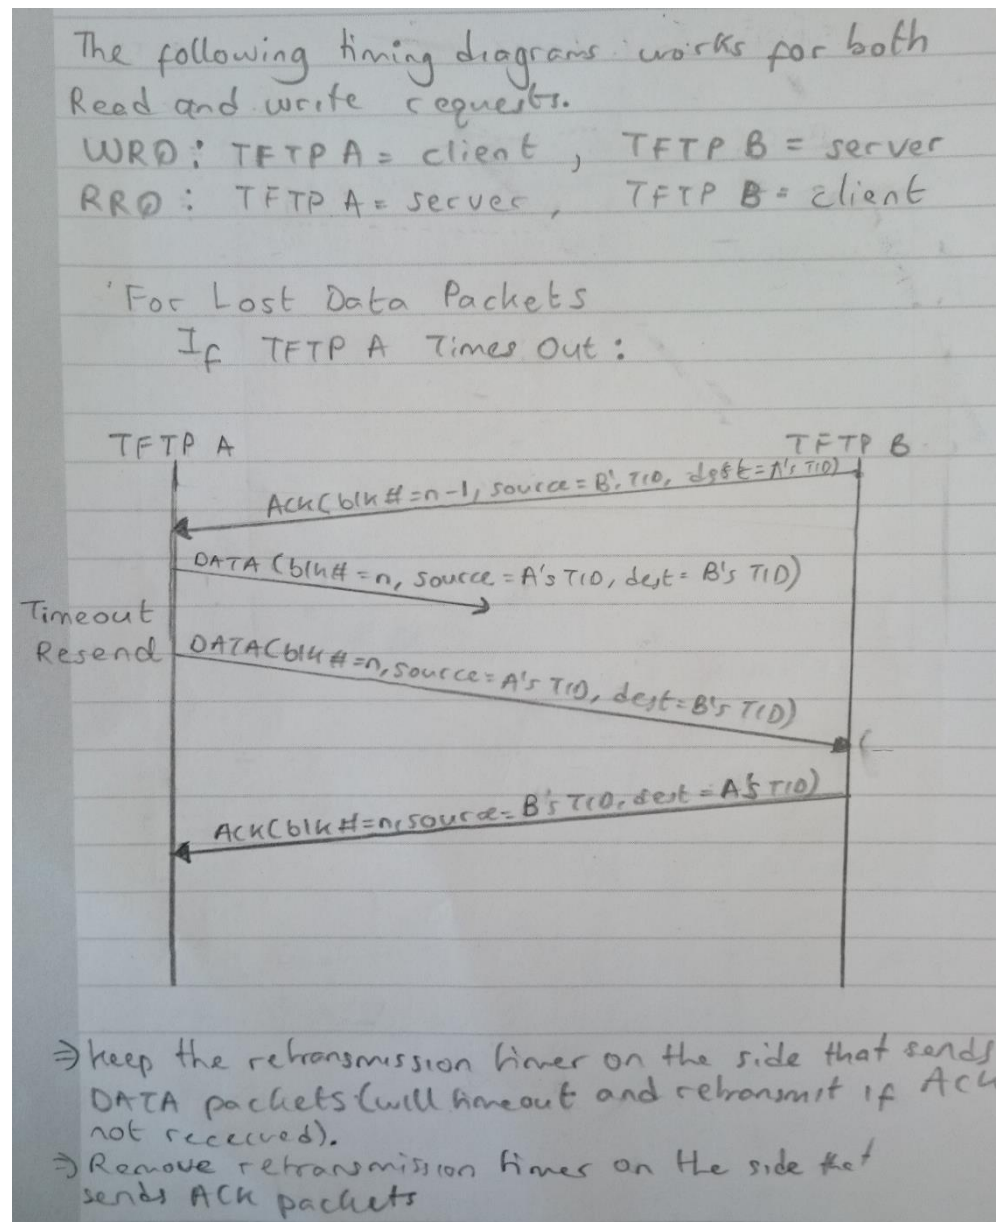 The following timing diagrams works for both
Read and write requests.
WRQ: TFTP A = client, TFTP B = server
RRQ: TFTP A = server, TFTP B = client
For Lost Data Packets
If TFTP A Times Out:
TFTP A TFTP B
ACK(blk#=n-1, source=B's TID, dest=A's TID)
DATA (blk#=n, source=A's TID, dest=B's TID)
Timeout
Resend DATA(blk#=n, source=A's TID, dest=B's TID)
ACK(blk#=n, source=B's TID, dest=A's TID)
⇒ keep the retransmission timer on the side that sends
DATA packets (will timeout and retransmit if ACK
not received).
⇒ Remove retransmission timer on the side that
sends ACK packets